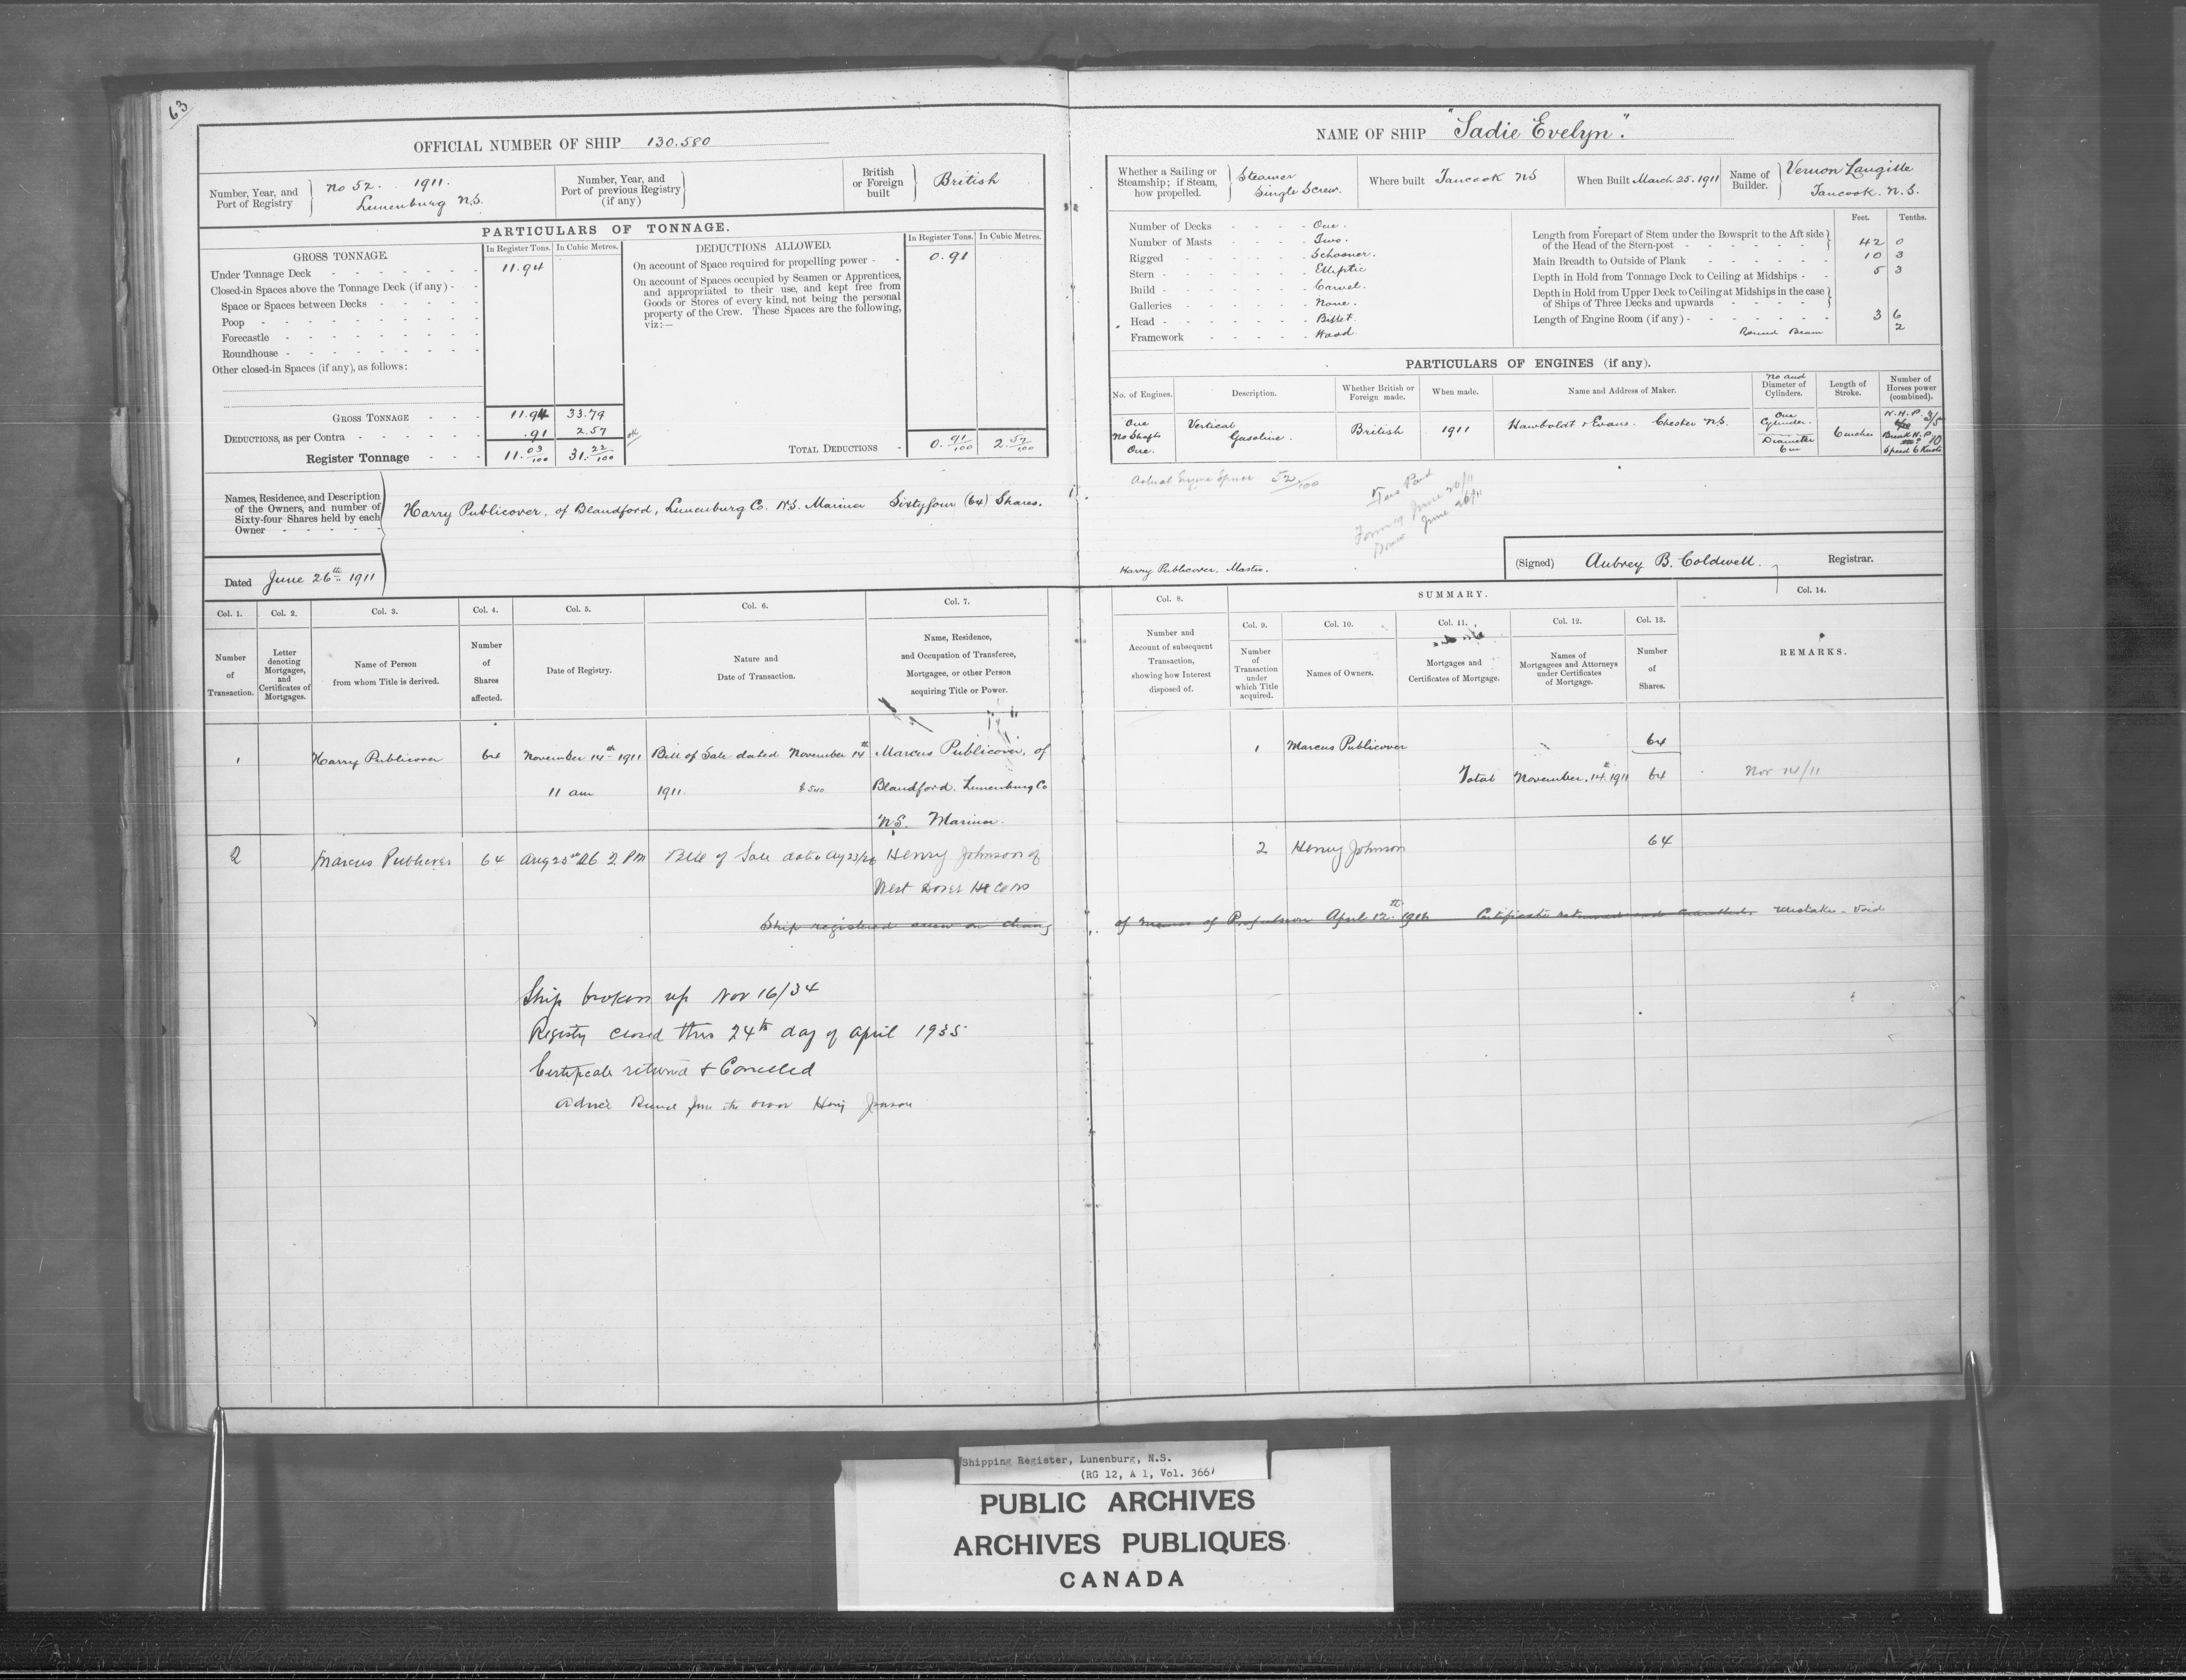 63
OFFICIAL NUMBER OF SHIP 130.580
Number, Year, and Port of Registry
No 52. 1911.
Lunenburg N.S.
Number, Year, and Port of previous Registry (if any)
British or Foreign built
British
PARTICULARS OF TONNAGE.
GROSS TONNAGE.
In Register Tons.
In Cubic Metres.
DEDUCTIONS ALLOWED.
In Register Tons.
In Cubic Metres.
Under Tonnage Deck 11.94
Closed-in Spaces above the Tonnage Deck (if any)
Space or Spaces between Decks
Poop
Forecastle
Roundhouse
Other closed-in Spaces (if any), as follows:
GROSS TONNAGE 11.94 33.79
DEDUCTIONS, as per Contra .91 2.57
Register Tonnage 11.03/100 31.22/100
On account of Space required for propelling power 0.91
On account of Spaces occupied by Seamen or Apprentices,
and appropriated to their use, and kept free from
Goods or Stores of every kind, not being the personal
property of the Crew. These Spaces are the following,
viz:—
TOTAL DEDUCTIONS 0.91/100 2.57/100
Names, Residence, and Description
of the Owners, and number of
Sixty-four Shares held by each
Owner
Harry Publicover, of Blandford, Lunenburg Co. N.S. Mariner Sixtyfour (64) Shares.
Dated June 26th 1911
NAME OF SHIP "Sadie Evelyn".
Whether a Sailing or Steamship; if Steam, how propelled.
Steamer
Single Screw.
Where built Tancook NS
When Built March 25. 1911
Name of Builder.
Vernon Langille
Tancook. N.S.
Number of Decks One.
Number of Masts Two.
Rigged Schooner.
Stern Elliptic
Build Carvel.
Galleries None.
Head Billet.
Framework Wood
Feet. Tenths.
Length from Forepart of Stem under the Bowsprit to the Aft side
of the Head of the Stern-post 42 0
Main Breadth to Outside of Plank 10 3
Depth in Hold from Tonnage Deck to Ceiling at Midships 5 3
Depth in Hold from Upper Deck to Ceiling at Midships in the case
of Ships of Three Decks and upwards
Length of Engine Room (if any) 3 6
Round Beam 2
PARTICULARS OF ENGINES (if any).
No. of Engines.
Description.
Whether British or Foreign made.
When made.
Name and Address of Maker.
No and Diameter of Cylinders.
Length of Stroke.
Number of Horses power (combined).
One
No Shafts
One.
Vertical
Gasoline.
British
1911
Hawboldt & Evans. Chester N.S.
One
Cylinder.
Diameter
6 in
6 inches
N.H.P.
Break H.P. 10
Speed 6 Knots
Actual Engine Space 52/100
Fees Paid
June 20/11
June 26/11
Harry Publicover. Master.
(Signed) Aubrey B. Coldwell. Registrar.
Col. 1. Col. 2. Col. 3. Col. 4. Col. 5. Col. 6. Col. 7.
Number of Transaction.
Letter denoting Mortgages, and Certificates of Mortgages.
Name of Person from whom Title is derived.
Number of Shares affected.
Date of Registry.
Nature and Date of Transaction.
Name, Residence, and Occupation of Transferee, Mortgagee, or other Person acquiring Title or Power.
Col. 8.
SUMMARY.
Col. 9. Col. 10. Col. 11. Col. 12. Col. 13. Col. 14.
Number and Account of subsequent Transaction, showing how Interest disposed of.
Number of Transaction under which Title acquired.
Names of Owners.
Mortgages and Certificates of Mortgage.
Names of Mortgagees and Attorneys under Certificates of Mortgage.
Number of Shares.
REMARKS.
1 Harry Publicover 64 November 14th 1911 Bill of Sale dated November 14th Marcus Publicover, of
11 am 1911. Blandford. Lunenburg Co
N.S. Mariner.
1 Marcus Publicover 64
Total November. 14th 1911 64 Nov 14/11
2 Marcus Publicover 64 Aug 25th 26 2 PM Bill of Sale dated Aug 23/26 Henry Johnson of
West Dover Hx Co NS
2 Henry Johnson 64
Ship registered anew on change of means of Propulsion April 12th 1912 Certificate returned and cancelled. Mistake - Void
Ship broken up Nov 16/34
Registry closed this 24th day of April 1935
Certificate returned & Cancelled
Advice from the owner
Shipping Register, Lunenburg, N.S.
(RG 12, A 1, Vol. 366)
PUBLIC ARCHIVES
ARCHIVES PUBLIQUES
CANADA